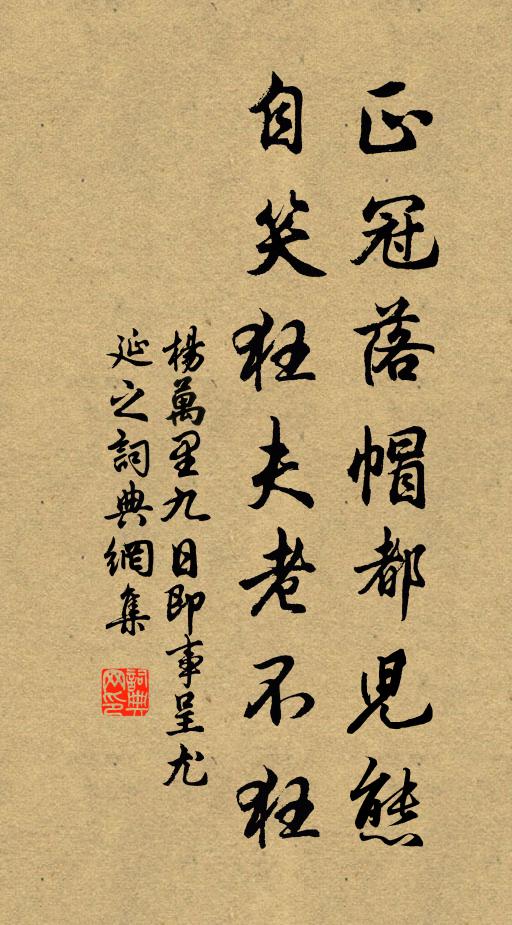 正冠落帽都兒態
自笑狂夫老不狂
楊萬里九日即事呈尤
延之詞典網集
詞典
网印